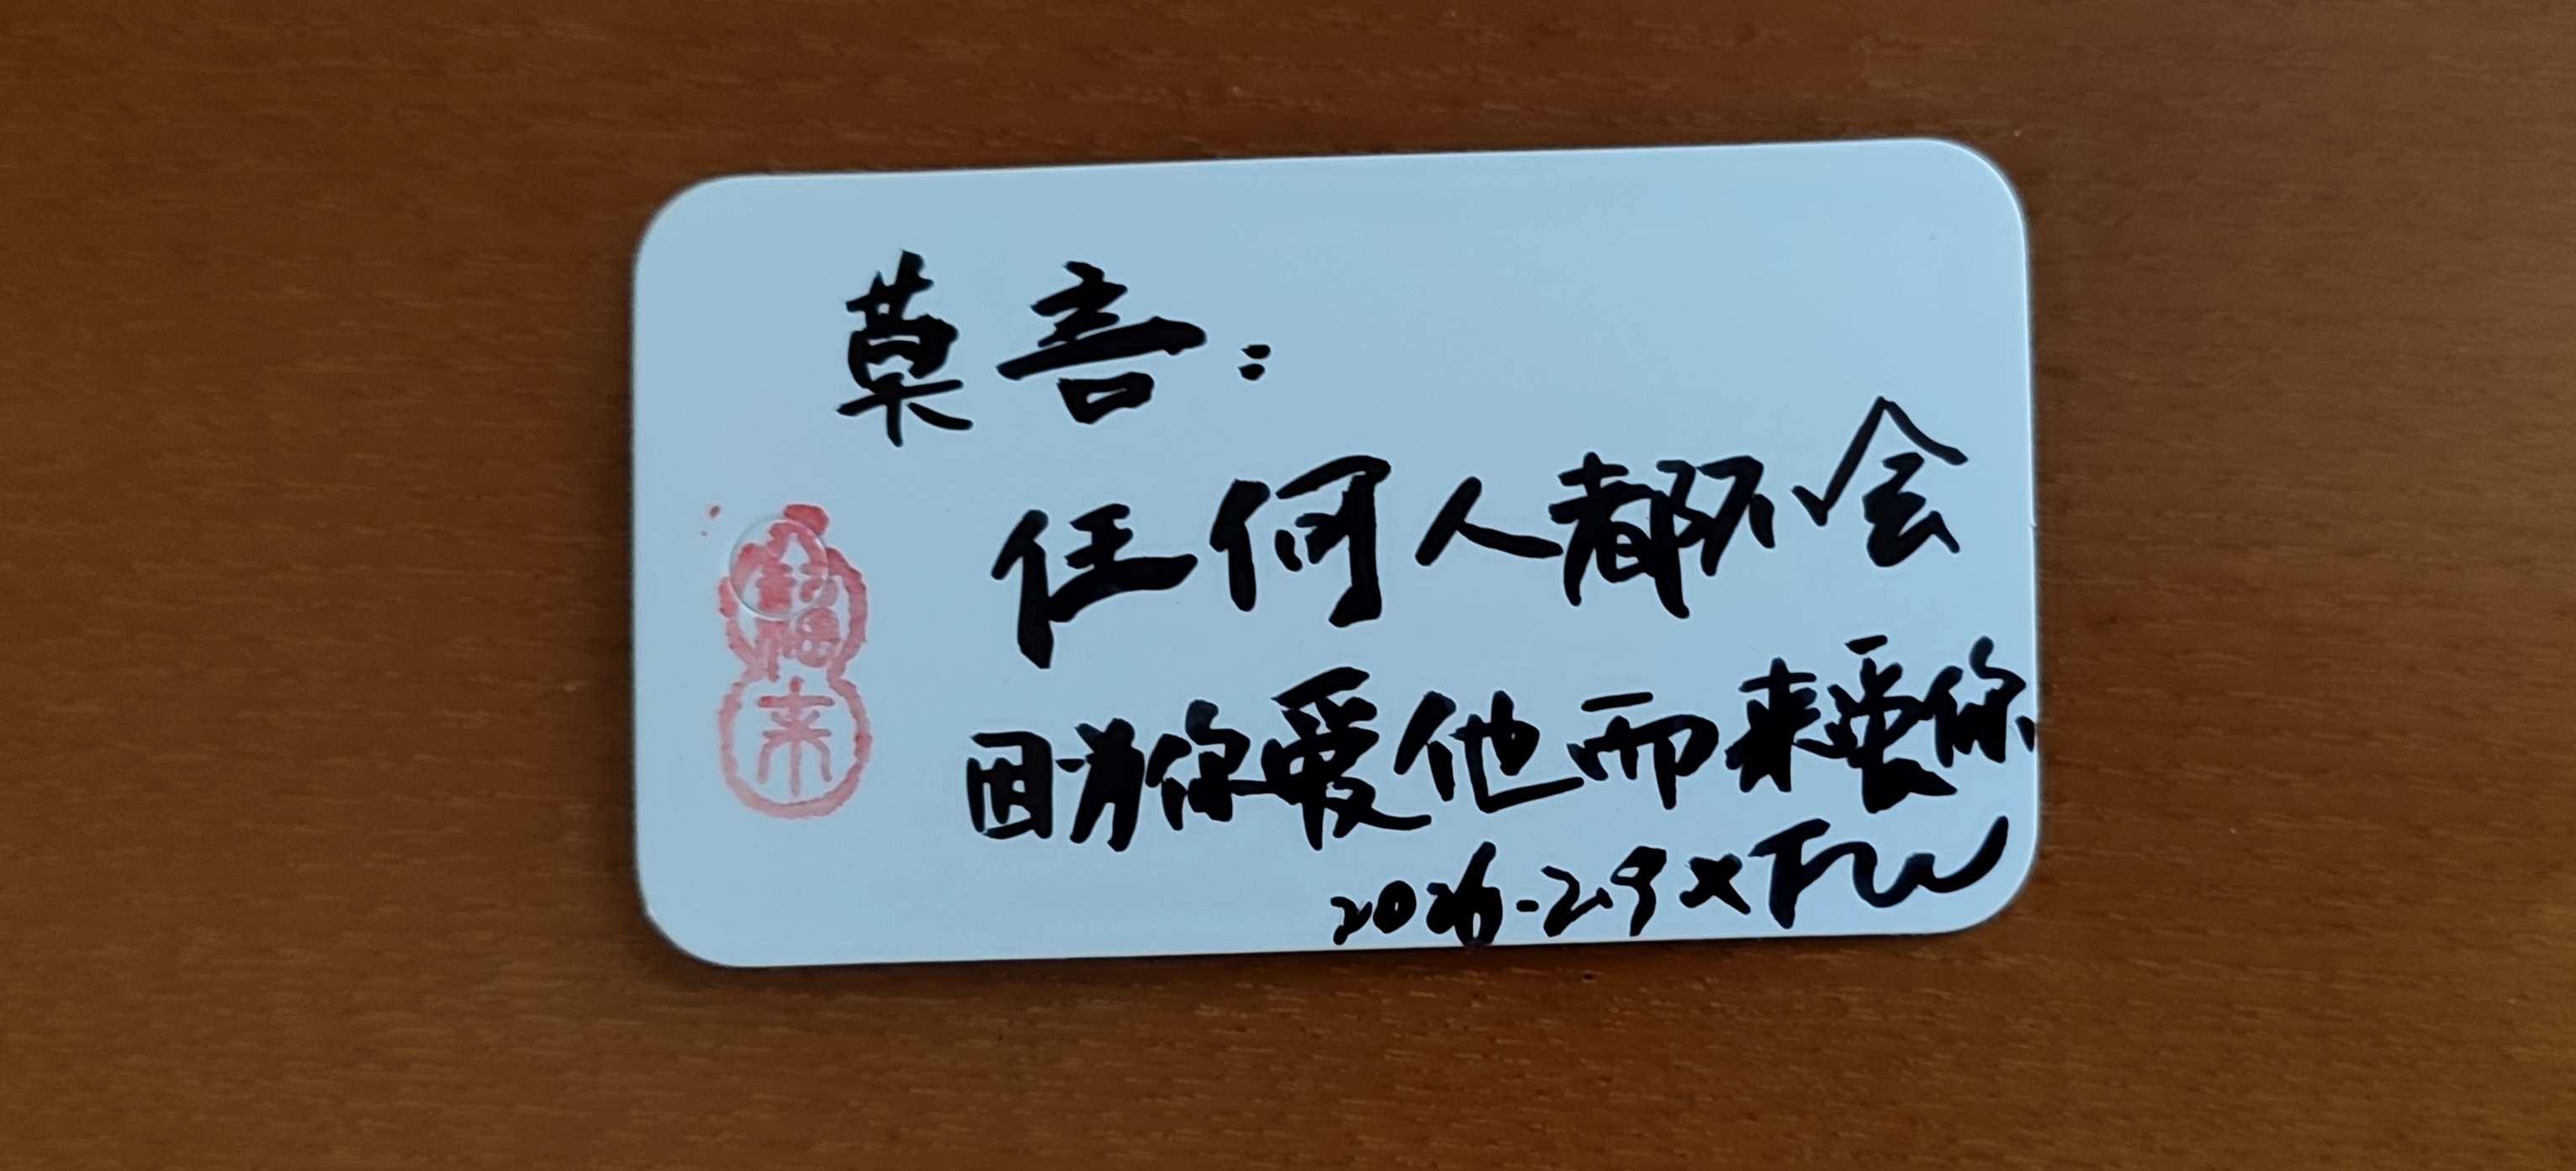 莫言:
任何人都不会
因为你爱他而来爱你
2026-2.9 XFW
来